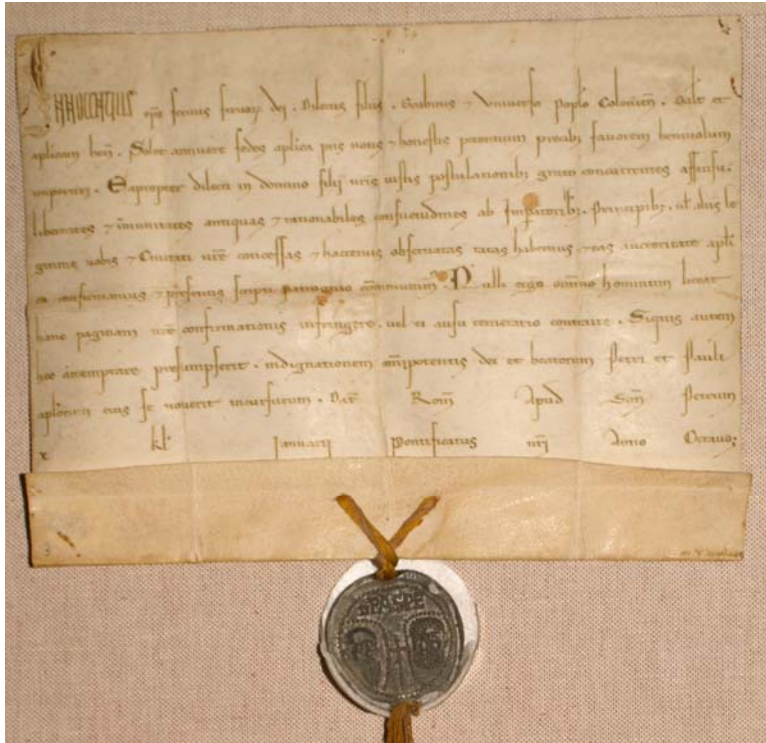 INNOCENTIUS ep̄s servus servoꝝ dei. Dilectis filiis. Scabinis ⁊ Universo Poplo Colonien̄. Salt̄ et
aplicam ben̄. Solet annuere sedes aplica piis votis ⁊ honestis petentium precibꝫ favorem benivolum
impertiri. Eapropter dilecti in domino filii vr̄is iustis postulationibꝫ grato concurrentes assensu.
libertates ⁊ īmunitates antiquas ⁊ rationabiles consuetudines ab Imꝑatoribꝫ. Principibꝫ. ul̄ aliis le
gitime vobis ⁊ Civitati vr̄e concessas ⁊ hactenus observatas ratas habemus. ⁊ eas auctoritate apl̄i
ca confirmamus ⁊ presentis scripti patrocinio cōmunimus. Nulli ergo omnino hominum liceat
hanc paginam nr̄e confirmationis infringere. vel ei ausu temerario contraire. Siquis autem
hoc attemptare presumpserit. indignationem om̄ipotentis dei et beatorum Petri et Pauli
apl̄orum eius se noverit incursurum. Dat̄ Rom̄ Apud Scm̄ Petrum
x. kl̄ Januarii Pontificatus nr̄i Anno Octavo.
SPASPE